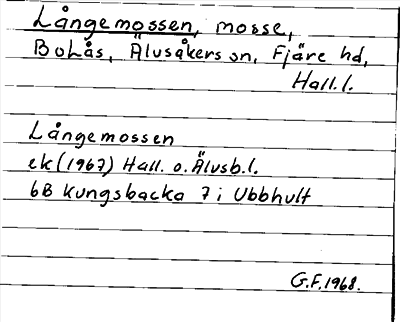 Långemossen, mosse,
Bolås, Älvsåkers sn, Fjäre hd,
Hall. l.
Långemossen
ek (1967) Hall. o. Älvsb. l.
6B Kungsbacka 7 i Ubbhult
G.F. 1968.